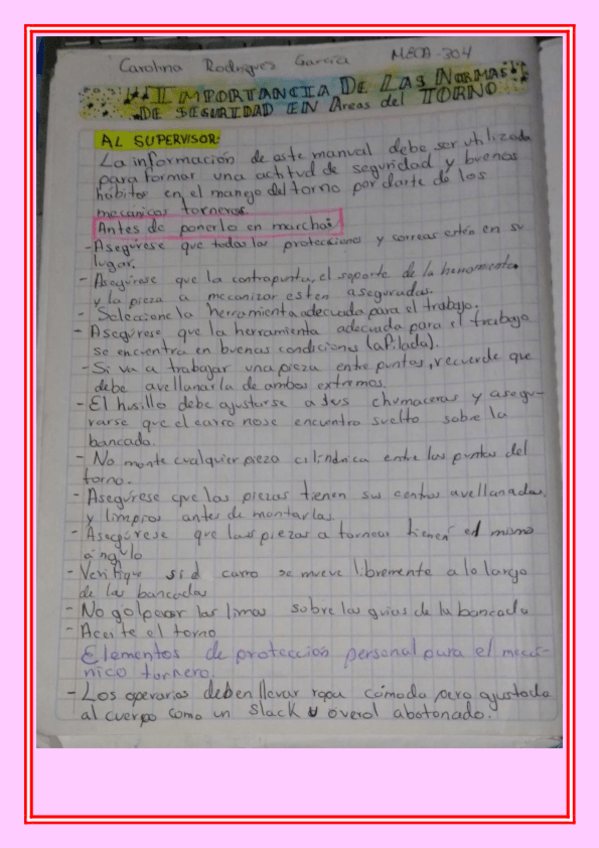 Carolina Rodrigues García MECA-304
IMPORTANCIA DE LAS NORMAS
DE SEGURIDAD EN Areas del TORNO
AL SUPERVISOR:
La información de este manual debe ser utilizada
para formar una actitud de seguridad y buenos
hábitos en el mango del torno por darte de los
mecánicos torneros.
Antes de ponerlo en marcha:
- Asegúrese que todas las protecciones y correas estén en su
lugar.
- Asegúrese que la contrapunta, el soporte de la herramienta
y la pieza a mecanizar esten aseguradas.
- Seleccione la herramienta adecuada para el trabajo.
- Asegúrese que la herramienta adecuada para el trabajo
se encuentra en buenas condiciones (afilada).
- Si va a trabajar una pieza entre puntos, recuerde que
debe avellanarla de ambos extremos.
- El husillo debe ajustarse a sus chumaceras y asegu-
rarse que el carro no se encuentro suelto sobre la
bancada.
- No monte cualquier pieza cilíndrica entre los puntos del
torno.
- Asegúrese que las piezas tienen sus centros avellanados,
y limpios antes de montarlas
- Asegúrese que las piezas a tornear tienen el mismo
ángulo
- Verifique si el carro se mueve libremente a lo largo
de las bancadas
- No golpear las limas sobre las guias de la bancada
- Aceite el torno
Elementos de protección personal para el mecá-
nico tornero.
- Los operarios deben llevar ropa cómoda pero ajustada
al cuerpo como un Slack u overol abotonado.